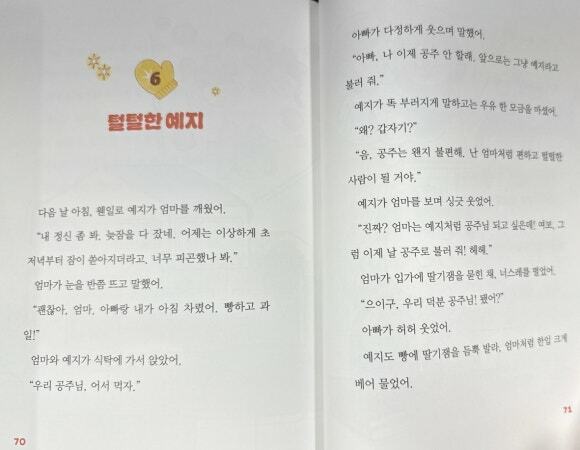 6
털털한 예지
다음 날 아침, 웬일로 예지가 엄마를 깨웠어.
“내 정신 좀 봐. 늦잠을 다 잤네. 어제는 이상하게 초
저녁부터 잠이 쏟아지더라고, 너무 피곤했나 봐.”
엄마가 눈을 반쯤 뜨고 말했어.
“괜찮아, 엄마. 아빠랑 내가 아침 차렸어. 빵하고 과
일!”
엄마와 예지가 식탁에 가서 앉았어.
“우리 공주님, 어서 먹자.”
70
아빠가 다정하게 웃으며 말했어.
“아빠, 나 이제 공주 안 할래. 앞으로는 그냥 예지라고
불러 줘.”
예지가 똑 부러지게 말하고는 우유 한 모금을 마셨어.
“왜? 갑자기?”
“음, 공주는 왠지 불편해. 난 엄마처럼 편하고 털털한
사람이 될 거야.”
예지가 엄마를 보며 싱긋 웃었어.
“진짜? 엄마는 예지처럼 공주님 되고 싶은데! 여보, 그
럼 이제 날 공주로 불러 줘! 헤헤.”
엄마가 입가에 딸기잼을 묻힌 채, 너스레를 떨었어.
“으이구, 우리 덕분 공주님! 됐어?”
아빠가 허허 웃었어.
예지도 빵에 딸기잼을 듬뿍 발라, 엄마처럼 한입 크게
베어 물었어.
71